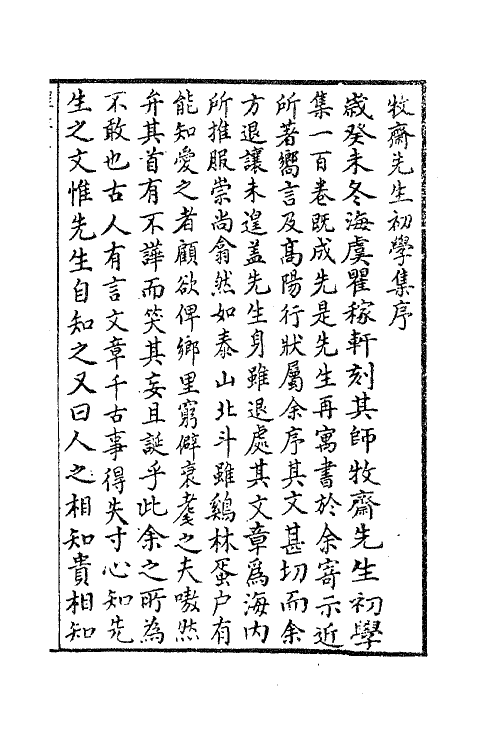 牧齋先生初學集序
歲癸未冬海虞瞿稼軒刻其師牧齋先生初學
集一百卷既成先是先生再寓書於余寄示近
所著嚮言及高陽行狀屬余序其文甚切而余
方退讓未遑盖先生身雖退處其文章爲海内
所推服崇尚翕然如泰山北斗雖鷄林蛋户有
能知愛之者顧欲俾鄉里窮僻衰耄之夫嗷然
弁其首有不譁而笑其妄且誕乎此余之所為
不敢也古人有言文章千古事得失寸心知先
生之文惟先生自知之又曰人之相知貴相知